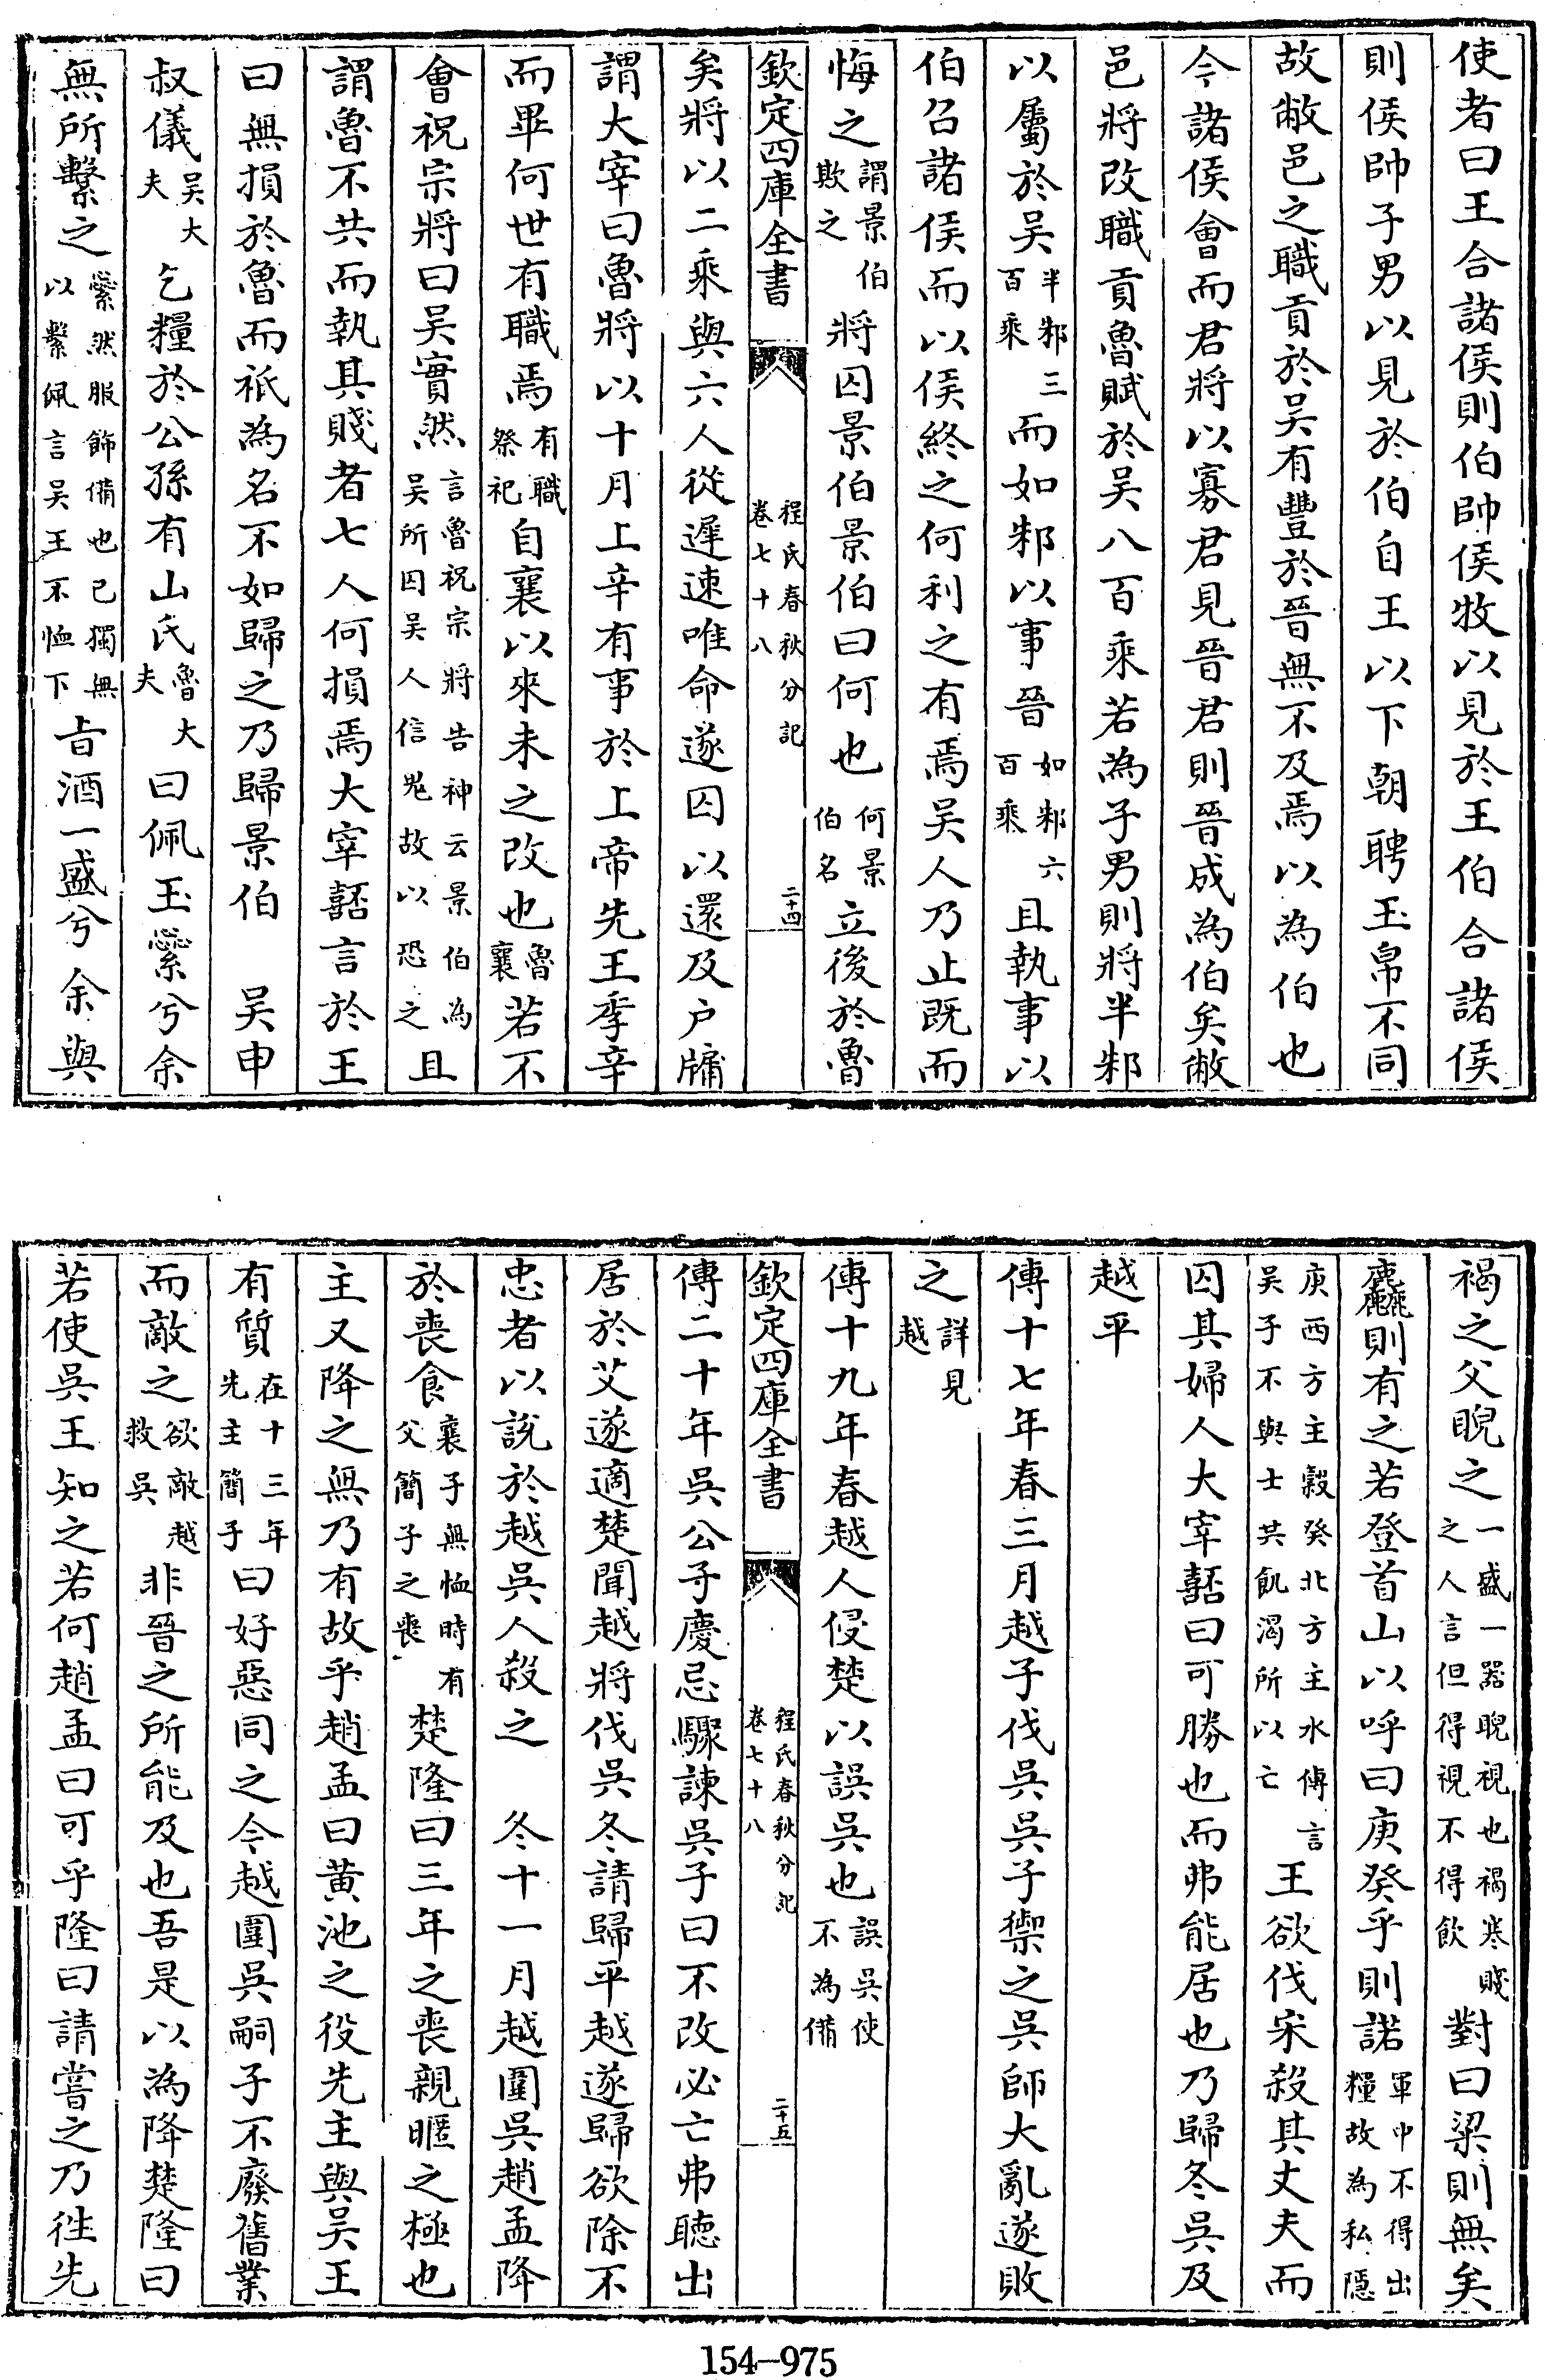 使者曰王合諸侯則伯帥侯牧以見於王伯合諸侯
則侯帥子男以見於伯自王以下朝聘玉帛不同
故敝邑之職貢於吳有豐於晉無不及焉以為伯也
今諸侯會而君將以寡君見晉君則晉成為伯矣敝
邑將改職貢魯賦於吳八百乘若為子男則將半邾
以屬於吳半邾三百乘而如邾以事晉如邾六百乘且執事以
伯召諸侯而以侯終之何利之有焉吳人乃止既而
悔之謂景伯欺之將囚景伯景伯曰何也何景伯名立後於魯
欽定四庫全書 程氏春秋分記卷七十八 二十四
矣將以二乘與六人從遲速唯命遂囚以還及户牖
謂大宰曰魯將以十月上辛有事於上帝先王季辛
而畢何世有職焉有職祭祀自襄以來未之改也魯襄若不
會祝宗將曰吳實然言魯祝宗將告神云景伯為吳所囚吳人信鬼故以恐之且
謂魯不共而執其賤者七人何損焉大宰嚭言於王
曰無損於魯而祇為名不如歸之乃歸景伯 吳申
叔儀吳大夫乞糧於公孫有山氏魯大夫曰佩玉繠兮余
無所繫之繠然服飾備也已獨無以繫佩言吳王不恤下旨酒一盛兮余與
褐之父睨之一盛一器睨視也褐寒賤之人言但得視不得飲對曰梁則無矣
麤則有之若登首山以呼曰庚癸乎則諾軍中不得出糧故為私隱
庚西方主穀癸北方主水傳言吳子不與士共飢渴所以亡王欲伐宋殺其丈夫而
囚其婦人大宰嚭曰可勝也而弗能居也乃歸冬吳及
越平
傳十七年春三月越子伐吳吳子禦之吳師大亂遂敗
之詳見越
傳十九年春越人侵楚以誤吳也誤吳使不為備
欽定四庫全書 程氏春秋分記卷七十八 二十五
傳二十年吳公子慶忌驟諫吳子曰不改必亡弗聽出
居於艾遂適楚聞越將伐吳冬請歸平越遂歸欲除不
忠者以說於越吳人殺之 冬十一月越圍吳趙孟降
於喪食襄子無恤時有父簡子之喪楚隆曰三年之喪親暱之極也
主又降之無乃有故乎趙孟曰黃池之役先主與吳王
有質在十三年先主簡子曰好惡同之今越圍吳嗣子不廢舊業
而敵之欲敵越救吳非晉之所能及也吾是以為降楚隆曰
若使吳王知之若何趙孟曰可乎隆曰請嘗之乃徃先
154-975